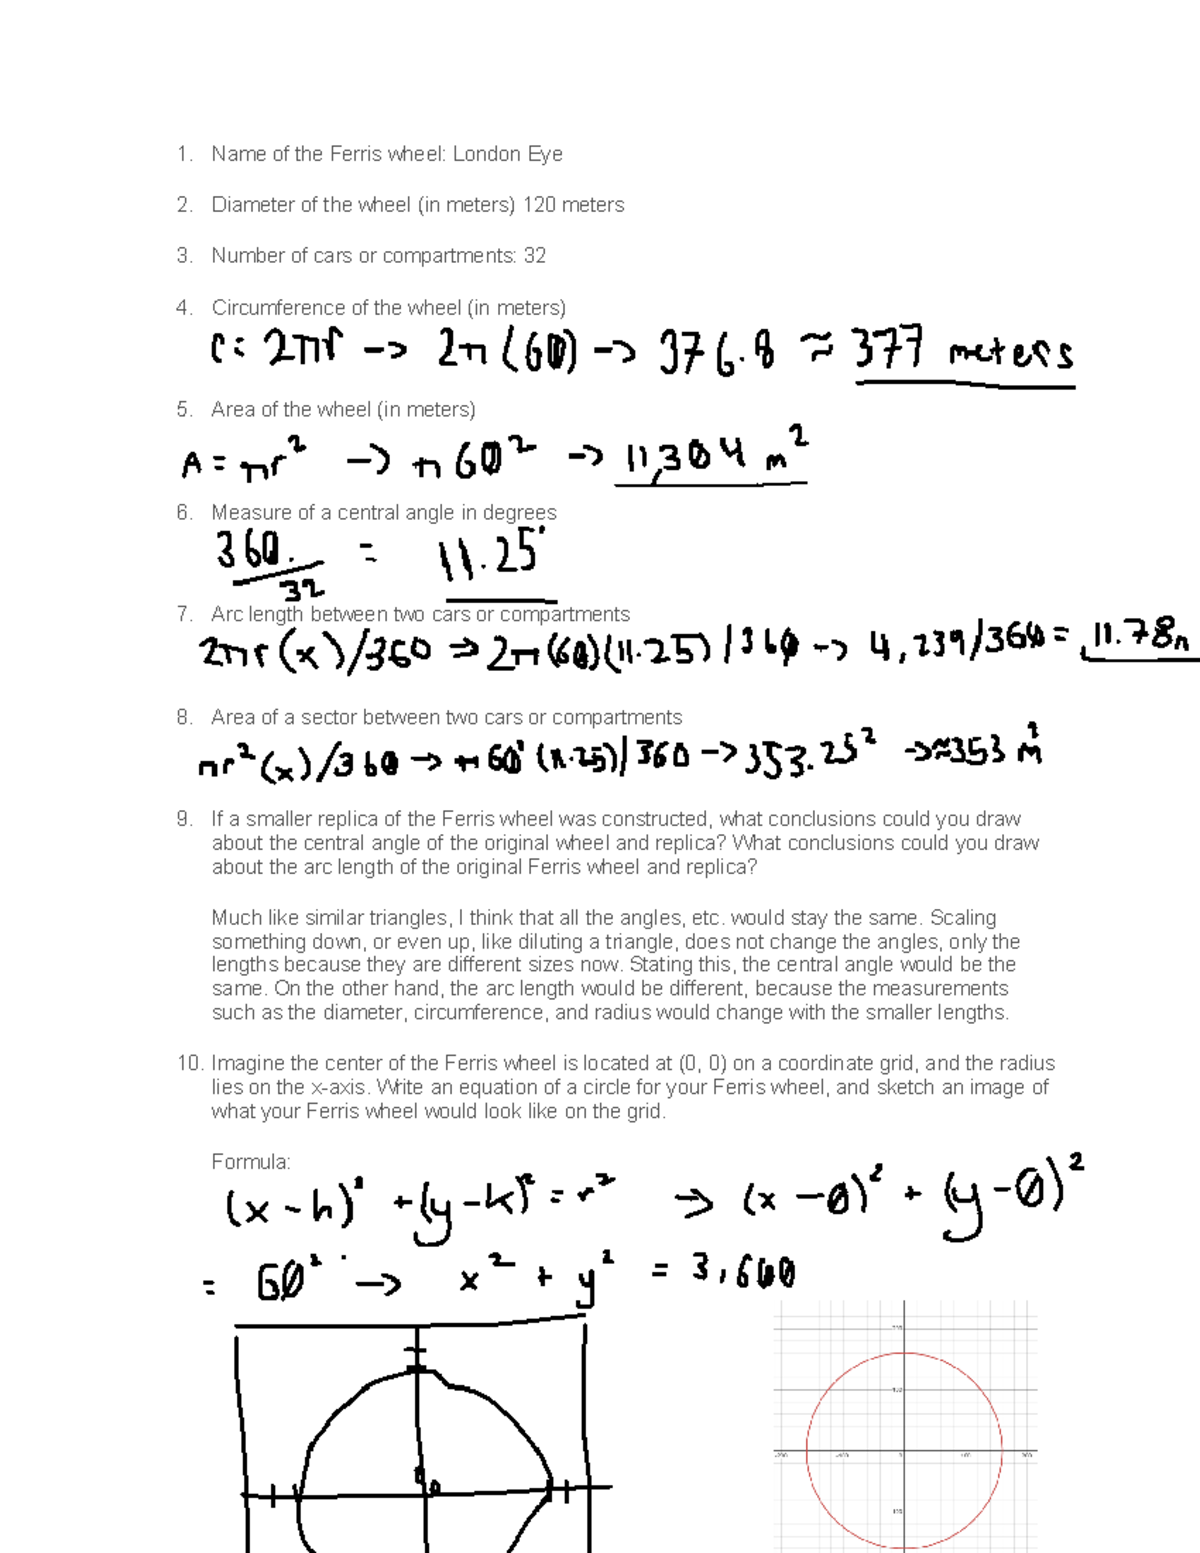 1. Name of the Ferris wheel: London Eye
2. Diameter of the wheel (in meters) 120 meters
3. Number of cars or compartments: 32
4. Circumference of the wheel (in meters)
C: 2πr -> 2π(60) -> 376.8 ≈ 377 meters
5. Area of the wheel (in meters)
A = πr² -> π60² -> 11,304 m²
6. Measure of a central angle in degrees
360/32 = 11.25°
7. Arc length between two cars or compartments
2πr(x)/360 => 2π(60)(11.25)/360 -> 4,239/360 = 11.78
8. Area of a sector between two cars or compartments
πr²(x)/360 -> π60²(11.25)/360 -> 353.25² -> ≈353 m²
9. If a smaller replica of the Ferris wheel was constructed, what conclusions could you draw
about the central angle of the original wheel and replica? What conclusions could you draw
about the arc length of the original Ferris wheel and replica?
Much like similar triangles, I think that all the angles, etc. would stay the same. Scaling
something down, or even up, like diluting a triangle, does not change the angles, only the
lengths because they are different sizes now. Stating this, the central angle would be the
same. On the other hand, the arc length would be different, because the measurements
such as the diameter, circumference, and radius would change with the smaller lengths.
10. Imagine the center of the Ferris wheel is located at (0, 0) on a coordinate grid, and the radius
lies on the x-axis. Write an equation of a circle for your Ferris wheel, and sketch an image of
what your Ferris wheel would look like on the grid.
Formula:
(x-h)² + (y-k)² = r² -> (x-0)² + (y-0)²
= 60² -> x² + y² = 3,600